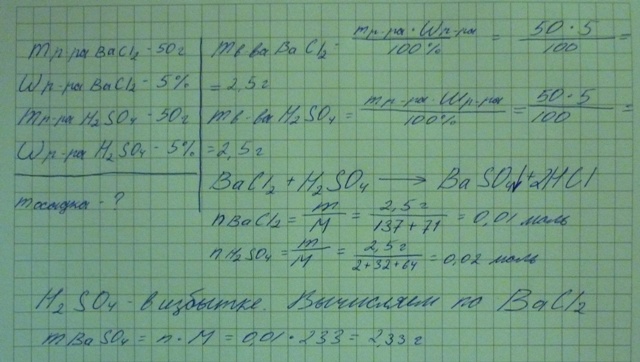 m р-ра BaCl₂ - 50г
W р-ра BaCl₂ - 5%
m р-ра H₂SO₄ - 50г
W р-ра H₂SO₄ - 5%
m осадка - ?
m в-ва BaCl₂ = m р-ра · W р-ра / 100% = 50 · 5 / 100 =
= 2,5г
m в-ва H₂SO₄ = m р-ра · W р-ра / 100% = 50 · 5 / 100 =
= 2,5г
BaCl₂ + H₂SO₄ → BaSO₄↓ + 2HCl
n BaCl₂ = m / M = 2,5г / 137 + 71 = 0,01 моль
n H₂SO₄ = m / M = 2,5г / 2 + 32 + 64 = 0,02 моль
H₂SO₄ - в избытке. Вычисляем по BaCl₂
m BaSO₄ = n · M = 0,01 · 233 = 2,33г